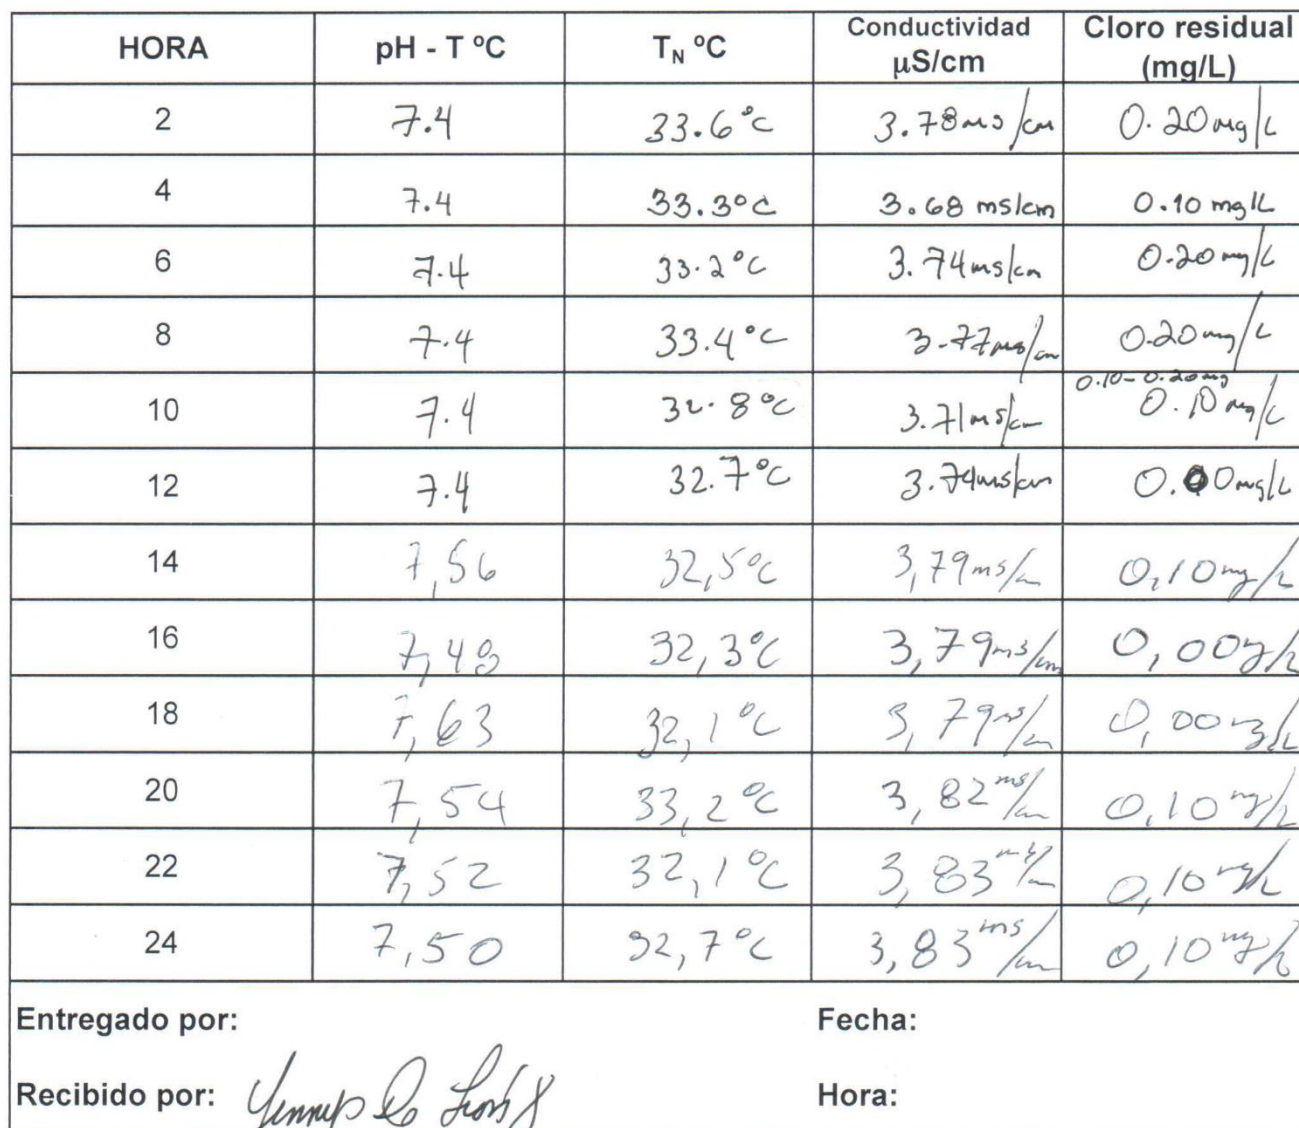 HORA pH - T ºC T_N ºC Conductividad µS/cm Cloro residual (mg/L)
2 7.4 33.6°C 3.78 ms/cm 0.20 mg/L
4 7.4 33.3°C 3.68 ms/cm 0.10 mg/L
6 7.4 33.2°C 3.74 ms/cm 0.20 mg/L
8 7.4 33.4°C 3.77 ms/cm 0.20 mg/L
0.10 - 0.20 mg
10 7.4 32.8°C 3.71 ms/cm 0.10 mg/L
12 7.4 32.7°C 3.74 ms/cm 0.00 mg/L
14 7,56 32,5°C 3,79 ms/cm 0,10 mg/L
16 7,48 32,3°C 3,79 ms/cm 0,00
18 7,63 32,1°C 3,79 ms/cm 0,00 mg/L
20 7,54 33,2°C 3,82 ms/cm 0,10 mg/L
22 7,52 32,1°C 3,83 ms/cm 0,10 mg/L
24 7,50 32,7°C 3,83 ms/cm 0,10 mg/L
Entregado por: Fecha:
Recibido por: Hora: